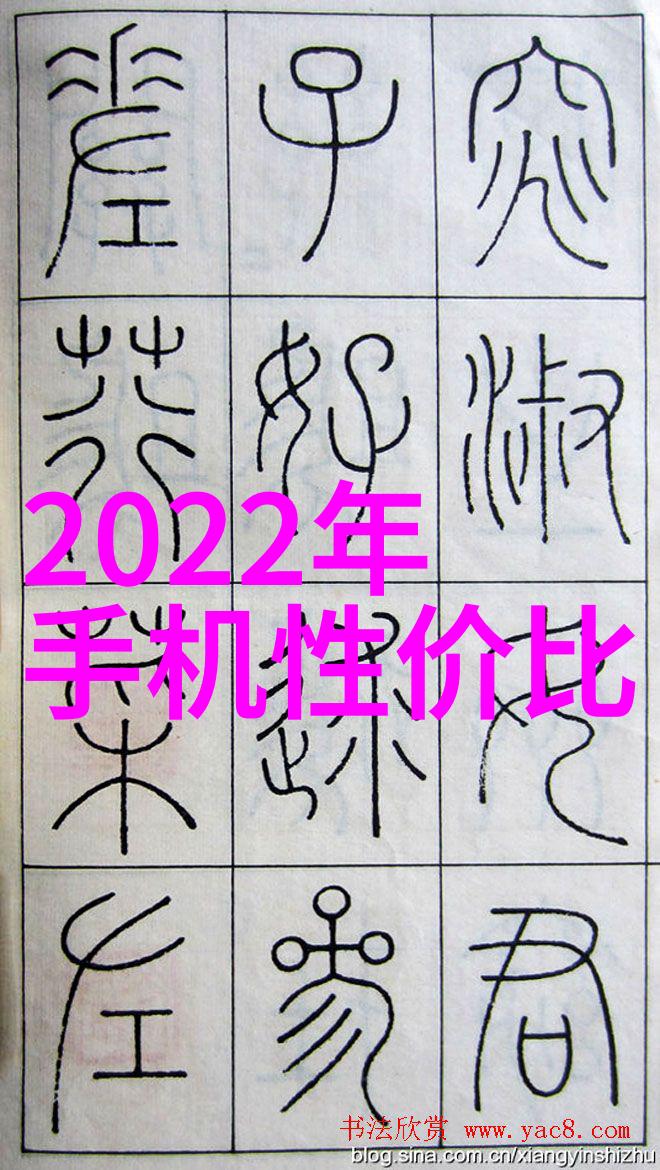 窕淑女君
子好逑参
差荇菜左
2022年
手机性价比
书法欣赏 www.yac8.com
blog.sina.com.cn/xiangyinshizhu